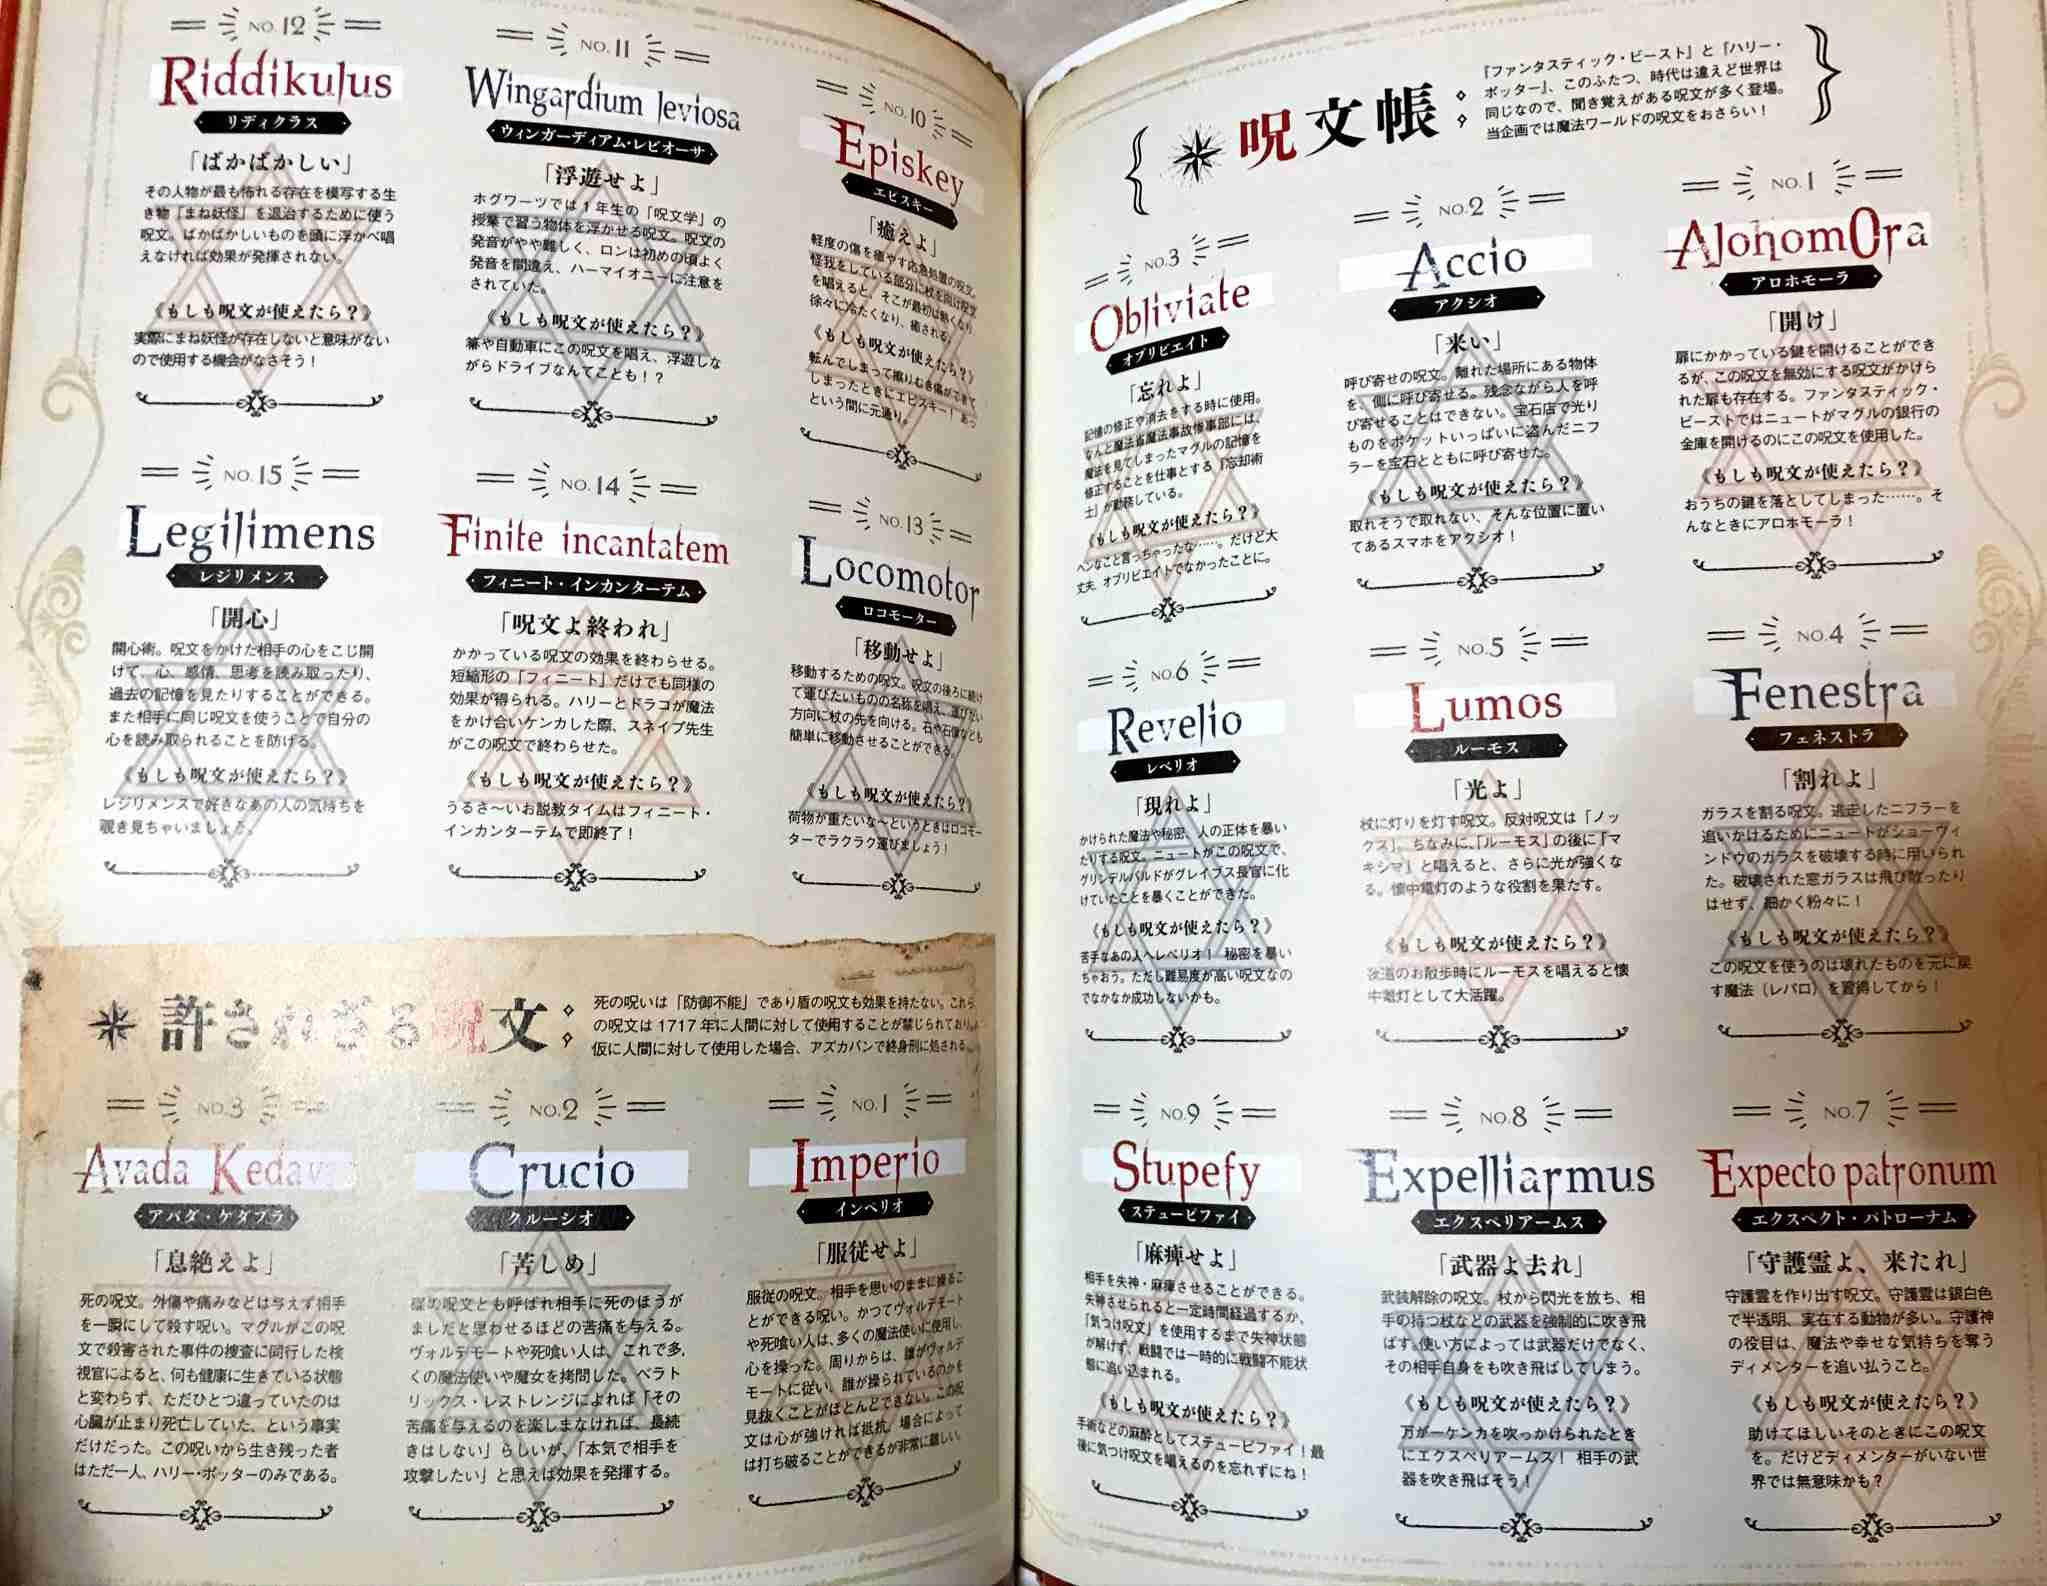 呪文帳
『ファンタスティック・ビースト』と『ハリー・
ポッター』、このふたつ、時代は違えど世界は
同じなので、聞き覚えがある呪文が多く登場。
当企画では魔法ワールドの呪文をおさらい！
NO.1
AlohomOra
アロホモーラ
「開け」
扉にかかっている鍵を開けることができ
るが、この呪文を無効にする呪文がかけら
れた扉も存在する。ファンタスティック・
ビーストではニュートがマグルの銀行の
金庫を開けるのにこの呪文を使用した。
《もしも呪文が使えたら？》
おうちの鍵を落としてしまった……。そ
んなときにアロホモーラ！
NO.2
Accio
アクシオ
「来い」
呼び寄せの呪文。離れた場所にある物体
を、側に呼び寄せる。残念ながら人を呼
び寄せることはできない。宝石店で光り
ものをポケットいっぱいに盗んだニフ
ラーを宝石とともに呼び寄せた。
《もしも呪文が使えたら？》
取れそうで取れない、そんな位置に置い
てあるスマホをアクシオ！
NO.3
Obliviate
オブリビエイト
「忘れよ」
記憶の修正や消去をする時に使用。
なんと魔法省魔法事故惨事部には、
魔法を見てしまったマグルの記憶を
修正することを仕事とする「忘却術
士」が勤務している。
《もしも呪文が使えたら？》
ヘンなこと言っちゃったな……。だけど大
丈夫、オブリビエイトでなかったことに。
NO.4
Fenestra
フェネストラ
「割れよ」
ガラスを割る呪文。逃走したニフラーを
追いかけるためにニュートがショーウィ
ンドウのガラスを破壊する時に用いられ
た。破壊された窓ガラスは飛び散ったり
はせず、細かく粉々に！
《もしも呪文が使えたら？》
この呪文を使うのは壊れたものを元に戻
す魔法（レパロ）を習得してから！
NO.5
Lumos
ルーモス
「光よ」
杖に灯りを灯す呪文。反対呪文は「ノッ
クス」。ちなみに、「ルーモス」の後に「マ
キシマ」と唱えると、さらに光が強くな
る。懐中電灯のような役割を果たす。
《もしも呪文が使えたら？》
夜道のお散歩時にルーモスを唱えると懐
中電灯として大活躍。
NO.6
Revelio
レベリオ
「現れよ」
かけられた魔法や秘密、人の正体を暴い
たりする呪文。ニュートがこの呪文で、
グリンデルバルドがグレイブス長官に化
けていたことを暴くことができた。
《もしも呪文が使えたら？》
苦手なあの人へレベリオ！ 秘密を暴い
ちゃおう。ただし難易度が高い呪文なの
でなかなか成功しないかも。
NO.7
Expecto patronum
エクスペクト・パトローナム
「守護霊よ、来たれ」
守護霊を作り出す呪文。守護霊は銀白色
で半透明、実在する動物が多い。守護神
の役目は、魔法や幸せな気持ちを奪う
ディメンターを追い払うこと。
《もしも呪文が使えたら？》
助けてほしいそのときにこの呪文
を。だけどディメンターがいない世
界では無意味かも？
NO.8
Expelliarmus
エクスペリアームス
「武器よ去れ」
武装解除の呪文。杖から閃光を放ち、相
手の持つ杖などの武器を強制的に吹き飛
ばす。使い方によっては武器だけでなく、
その相手自身をも吹き飛ばしてしまう。
《もしも呪文が使えたら？》
万が一ケンカを吹っかけられたとき
にエクスペリアームス！ 相手の武
器を吹き飛ばそう！
NO.9
Stupefy
ステューピファイ
「麻痺せよ」
相手を失神・麻痺させることができる。
失神させられると一定時間経過するか、
「気つけ呪文」を使用するまで失神状態
が解けず、戦闘では一時的に戦闘不能状
態に追い込まれる。
《もしも呪文が使えたら？》
手術などの麻酔としてステューピファイ！最
後に気つけ呪文を唱えるのを忘れずにね！
NO.10
Episkey
エピスキー
「癒えよ」
軽度の傷を癒やす応急処置の呪文。
怪我をしている部分に杖を向け呪文
を唱えると、そこが最初は熱くなり、
徐々に冷たくなり、癒される。
《もしも呪文が使えたら？》
転んでしまって擦りむき傷ができて
しまったときにエピスキー！ あっ
という間に元通り。
NO.11
Wingardium leviosa
ウィンガーディアム・レビオーサ
「浮遊せよ」
ホグワーツでは1年生の「呪文学」の
授業で習う物体を浮かせる呪文。呪文の
発音がやや難しく、ロンは初めの頃よく
発音を間違え、ハーマイオニーに注意を
されていた。
《もしも呪文が使えたら？》
箒や自動車にこの呪文を唱え、浮遊しな
がらドライブなんてことも！？
NO.12
Riddikulus
リディクラス
「ばかばかしい」
その人物が最も怖れる存在を模写する生
き物「まね妖怪」を退治するために使う
呪文。ばかばかしいものを頭に浮かべ唱
えなければ効果が発揮されない。
《もしも呪文が使えたら？》
実際にまね妖怪が存在しないと意味がない
ので使用する機会がなさそう！
NO.13
Locomotor
ロコモーター
「移動せよ」
移動するための呪文。呪文の後ろに続け
て運びたいものの名称を唱え、運びたい
方向に杖の先を向ける。石や石像なども
簡単に移動させることができる。
《もしも呪文が使えたら？》
荷物が重たいな〜というときはロコモー
ターでラクラク運びましょう！
NO.14
Finite incantatem
フィニート・インカンターテム
「呪文よ終われ」
かかっている呪文の効果を終わらせる。
短縮形の「フィニート」だけでも同様の
効果が得られる。ハリーとドラコが魔法
をかけ合いケンカした際、スネイプ先生
がこの呪文で終わらせた。
《もしも呪文が使えたら？》
うるさ〜いお説教タイムはフィニート・
インカンターテムで即終了！
NO.15
Legilimens
レジリメンス
「開心」
開心術。呪文をかけた相手の心をこじ開
けて、心、感情、思考を読み取ったり、
過去の記憶を見たりすることができる。
また相手に同じ呪文を使うことで自分の
心を読み取られることを防げる。
《もしも呪文が使えたら？》
レジリメンスで好きなあの人の気持ちを
覗き見ちゃいましょう。
許されざる呪文
死の呪いは「防御不能」であり盾の呪文も効果を持たない。これら
の呪文は1717年に人間に対して使用することが禁じられており、
仮に人間に対して使用した場合、アズカバンで終身刑に処される。
NO.1
Imperio
インペリオ
「服従せよ」
服従の呪文。相手を思いのままに操るこ
とができる呪い。かつてヴォルデモート
や死喰い人は、多くの魔法使いに使用し、
心を操った。周りからは、誰がヴォルデ
モートに従い、誰が操られているのかを
見抜くことがほとんどできない。この呪
文は心が強ければ抵抗、場合によって
は打ち破ることができるが非常に難しい。
NO.2
Crucio
クルーシオ
「苦しめ」
磔の呪文とも呼ばれ相手に死のほうが
ましだと思わせるほどの苦痛を与える。
ヴォルデモートや死喰い人は、これで多
くの魔法使いや魔女を拷問した。ベラト
リックス・レストレンジによれば「その
苦痛を与えるのを楽しまなければ、長続
きはしない」らしいが、「本気で相手を
攻撃したい」と思えば効果を発揮する。
NO.3
Avada Kedavra
アバダ・ケダブラ
「息絶えよ」
死の呪文。外傷や痛みなどは与えず相手
を一瞬にして殺す呪い。マグルがこの呪
文で殺害された事件の捜査に同行した検
視官によると、何も健康に生きている状態
と変わらず、ただひとつ違っていたのは
心臓が止まり死亡していた、という事実
だけだった。この呪いから生き残った者
はただ一人、ハリー・ポッターのみである。